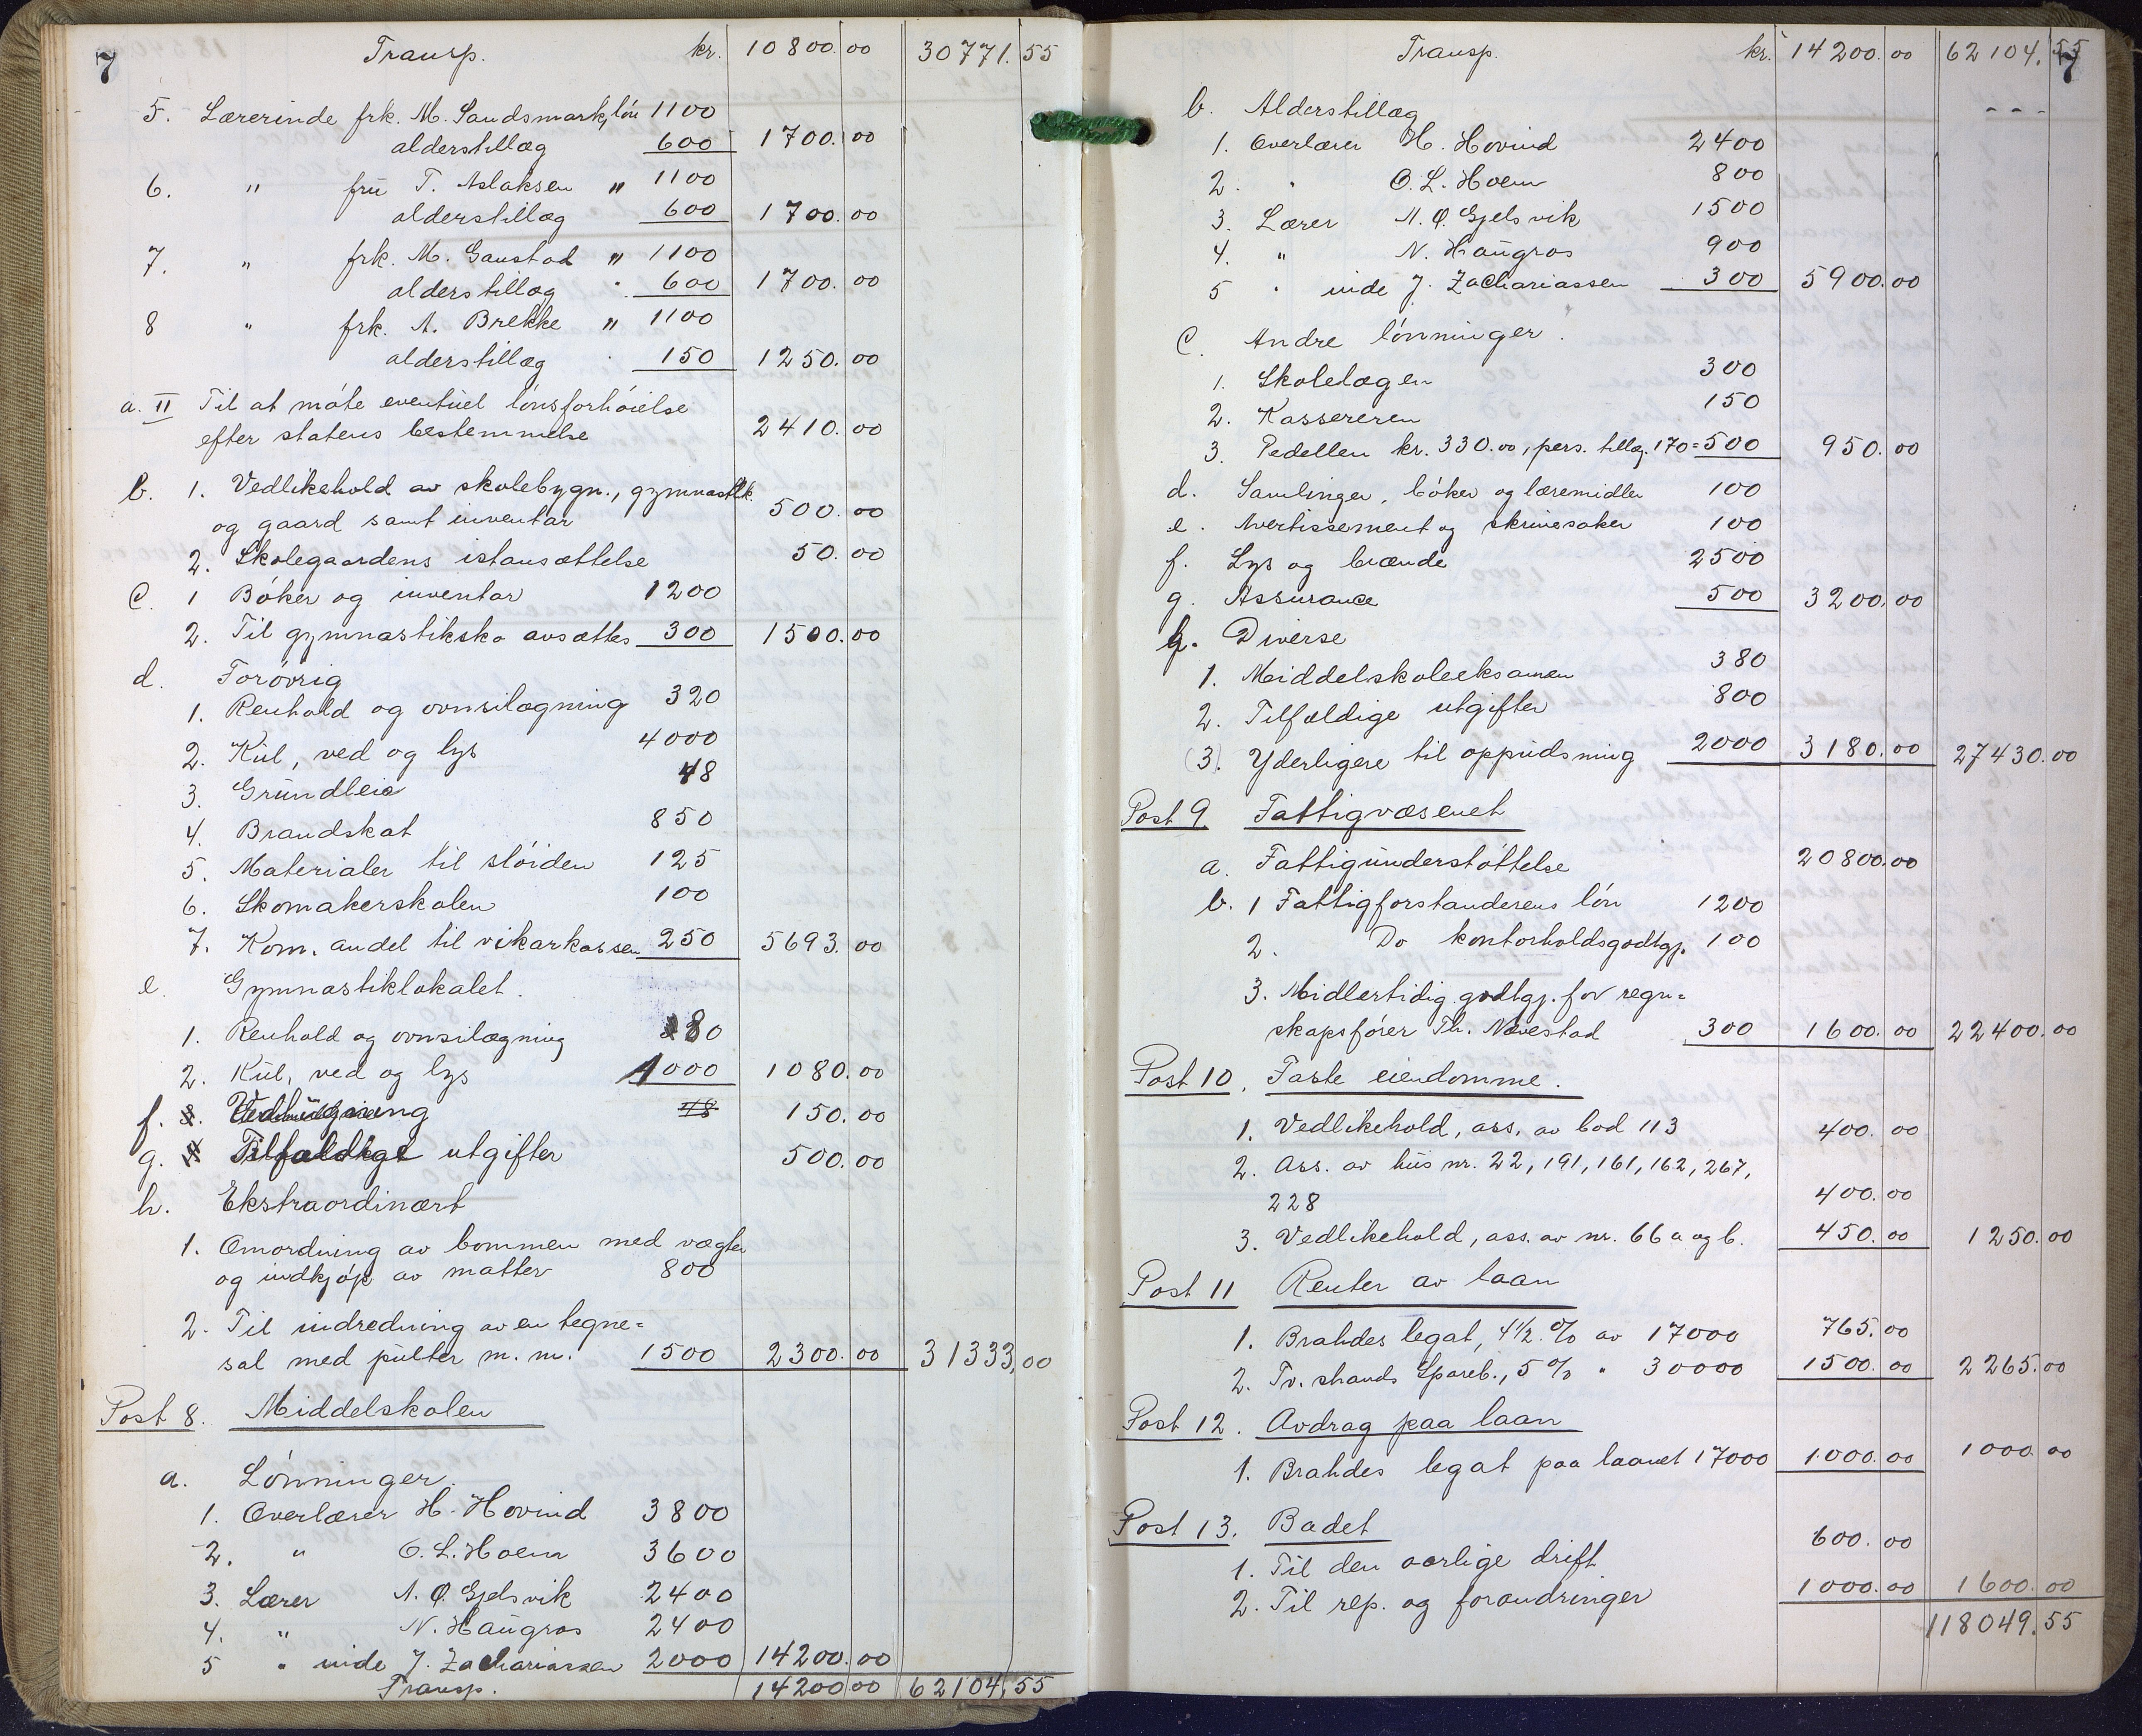 7 Transp. kr. 10800.00 30771.55
5. Lærerinde frk. M. Sandsmark, løn 1100
alderstillæg 600 1700.00
6. " fru T. Aslaksen " 1100
alderstillæg 600 1700.00
7. " frk. M. Gaustad " 1100
alderstillæg " 600 1700.00
8 " frk. A. Brekke " 1100
alderstillæg 150 1250.00
a. II Til at møte eventuel lønsforhøielse
efter statens bestemmelse 2410.00
b. 1. Vedlikehold av skolebygn., gymnastlk.
og gaard samt inventar 500.00
2. Skolegaardens istansættelse 50.00
C. 1 Bøker og inventar 1200
2. Til gymnastiksko avsættes 300 1500.00
d. Forøvrig
1. Renhold og ovnsilægning 320
2. Kul, ved og lys 4000
3. Grundleie 48
4. Brandskat 850
5. Materialer til sløiden 125
6. Skomakerskolen 100
7. Kom. andel til vikarkassen 250 5693.00
e. Gymnastiklokalet.
1. Renhold og ovnsilægning 80
2. Kul, ved og lys 1000 1080.00
f. 48 150.00
g. Tilfældige utgifter 500.00
h. Ekstraordinært
1. Omordning av bommen med vægter
og indkjøp av matter 800
2. Til indredning av en tegne=
sal med pulter m. m. 1500 2300.00 31333,00
Post 8. Middelskolen
a. Lønninger.
1. Overlærer H. Hovind 3800
2. " O. L. Hoem 3600
3. Lærer A. O. Gjelsvik 2400
4. " N. Haugros 2400
5 " inde J. Zachariassen 2000 14200.00
Transp. 14200 00 62104,55
Transp. kr. 14200.00 62104.55 7
b. Alderstillæg - - -
1. Overlærer H. Hovind 2400
2. " O. L. Hoem 800
3. Lærer A. O. Gjelsvik 1500
4. " N. Haugros 900
5 " inde J. Zachariassen 300 5900.00
C. Andre lønninger.
1. Skolelægen 300
2. Kassereren 150
3. Pedellen kr. 330.00, pers. tillæg. 170 = 500 950.00
d. Samlinger, bøker og læremidler 100
e. Avertissement og skrivesaker 100
f. Lys og brænde 2500
g. Assurance 500 3200,00
h. Diverse
1. Middelskoleeksamen 380
2. Tilfældige utgifter 800
(3). Yderligere til oppudsning 2000 3180.00 27430.00
Post 9 Fattigvæsenet
a. Fattigunderstøttelse 20800.00
b. 1 Fattigforstanderens løn 1200
2. Do kontorholdsgodtgj. 100
3. Midlertidig godtgj. for regn=
skapsfører Th. Nævestad 300 1600.00 22400.00
Post 10. Faste eiendomme.
1. Vedlikehold, ass. av bod 113 400.00
2. Ass. av hus nr. 22, 191, 161, 162, 267,
228 400.00
3. Vedlikehold, ass. av nr. 66 a og b. 450.00 1250.00
Post 11 Renter av laan
1. Brahdes legat, 4½ % av 17000 765.00
2. Tv. strands Spareb., 5 % " 30000 1500.00 2265.00
Post 12. Avdrag paa laan
1. Brahdes legat paa laanet 17000 1000.00 1000.00
Post 13. Badet
1. Til den aarlige drift 600.00
2. Til rep. og forandringer 1000.00 1600.00
118049.55